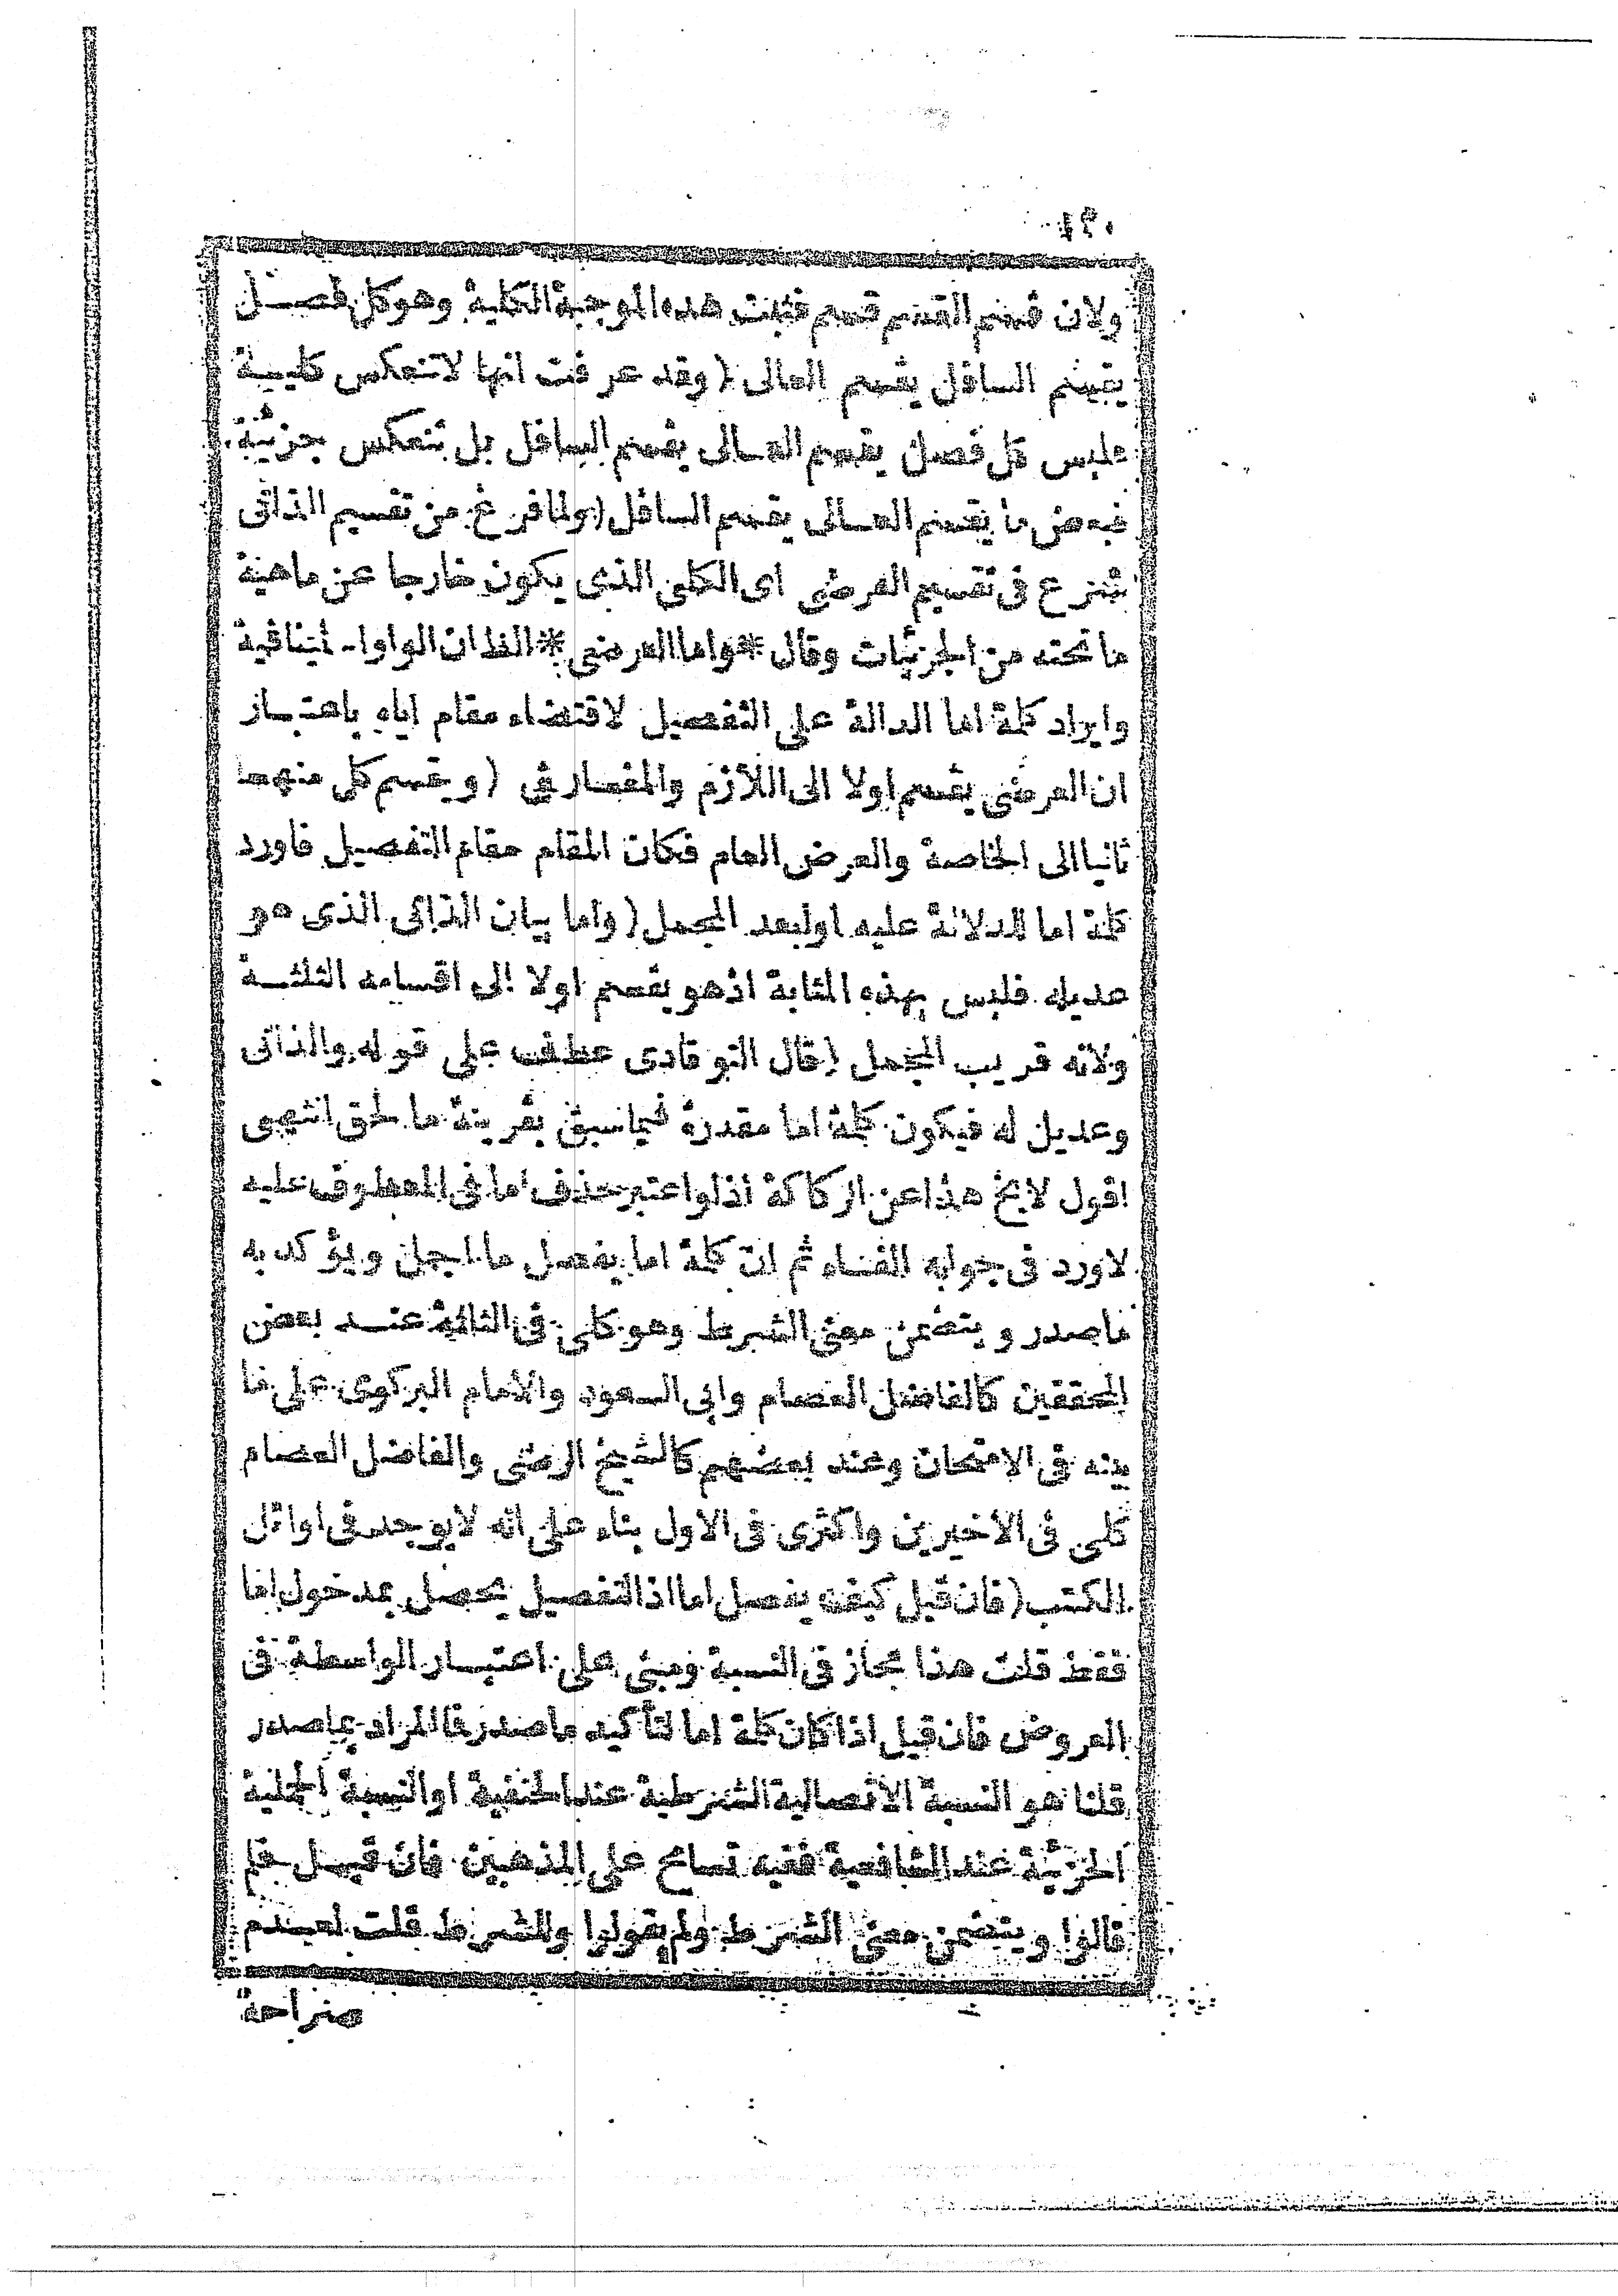 ١٢٠
ولان قسم القسم قسم فثبت هذه الموجبة الكلية وهو كل فصل
يقسم السافل يقسم العالى (وقد عرفت انها لاتنعكس كلية
فليس كل فصل يقسم العالى يقسم السافل بل تنعكس جزئية
فبعض ما يقسم العالى يقسم السافل (ولما فرغ من تقسيم الذاتى
شرع فى تقسيم العرضى اى الكلى الذى يكون خارجا عن ماهية
ماتحته من الجزئيات وقال * واما العرضى * الظ ان الواو استينافية
وايراد كلمة اما الدالة على التفصيل لاقتضاء مقام اياه باعتبار
ان العرضى يقسم اولا الى اللازم والمفارق (ويقسم كل منهما
ثانيا الى الخاصة والعرض العام فكان المقام مقام التفصيل فاورد
كلمة اما للدلالة عليه اولبعد المجمل (واما بيان الذاتى الذى هو
عديله فليس بهذه المثابة اذهو يقسم اولا الى اقسامه الثلثة
ولانه قريب المجمل (قال التوقادى عطف على قوله والذاتى
وعديل له فيكون كلمة اما مقدرة فيماسبق بقرينة ما لحق انتهى
اقول لايخ هذا عن الركاكة اذلواعتبر حذف اما فى المعطوف عليه
لاورد فى جوابه الفاء ثم ان كلمة اما يفصل ما اجمل ويؤكد به
ماصدر ويتضمن معنى الشرط وهو كلى فى الثلثة عند بعض
المحققين كالفاضل العصام وابى السعود والامام البركوى على ما
بينه فى الامتحان وعند بعضهم كالشيخ الرضى والفاضل العصام
كلى فى الاخيرين واكثرى فى الاول بناء على انه لايوجد فى اوائل
الكتب (فان قيل كيف يفصل اما اذ التفصيل يحصل بمدخول اما
فقط قلت هذا مجاز فى النسبة ومبنى على اعتبار الواسطة فى
العروض فان قيل اذا كان كلمة اما لتأكيد ماصدر فا المراد بماصدر
قلنا هو النسبة الاتصالية الشرطية عند الحنفية او النسبة الحملية
الجزئية عند الشافعية ففيه تسامح على المذهبين فان قيل فلم
قالوا ويتضمن معنى الشرط ولم يقولوا وللشرط قلت لعدم
صراحة